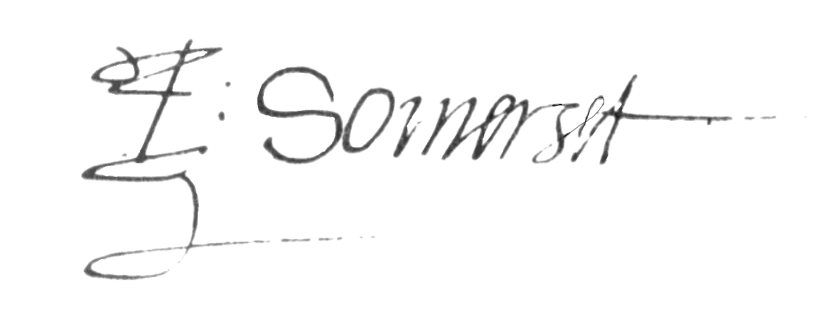 E: Somerset